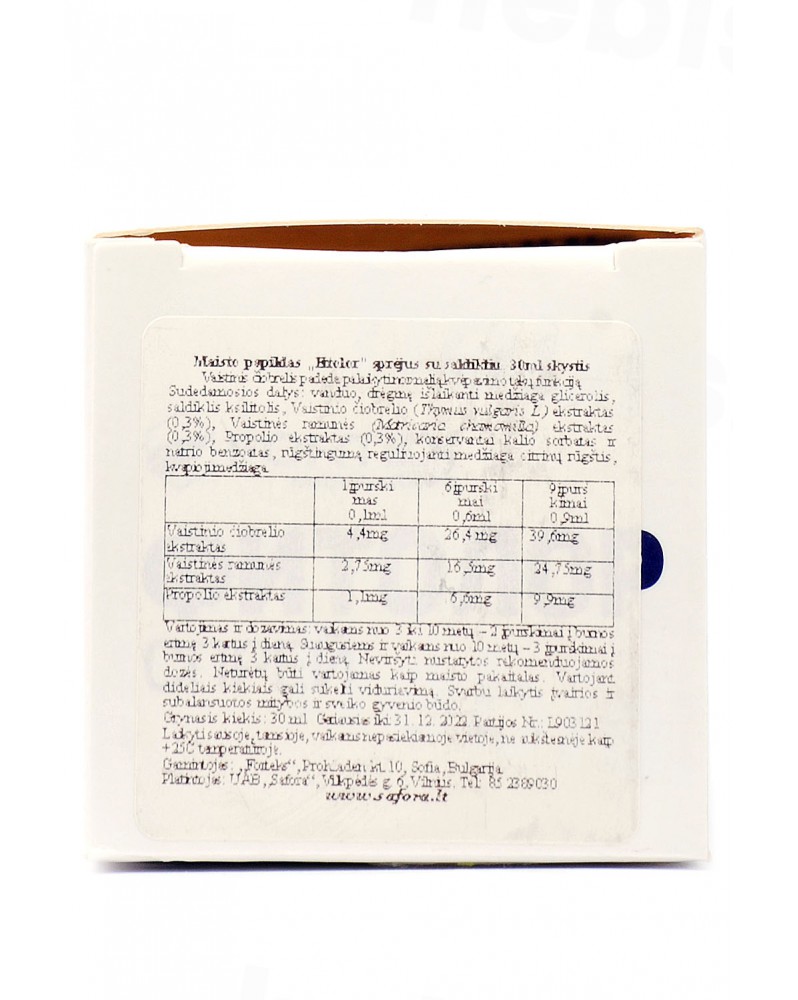 Maisto papildas „Fitolor“ sprėjus su saldikliu 30ml skystis
Vaistinis čiobrelis padeda palaikyti normalią kvėpavimo takų funkciją
Sudedamosios dalys: vanduo, drėgmę išlaikanti medžiaga glicerolis,
saldiklis ksilitolis, Vaistinio čiobrelio (Thymus vulgaris L.) ekstraktas
(0,3%), Vaistinės ramunės (Matricaria chamomilla) ekstraktas
(0,3%), Propolio ekstraktas (0,3%), konservantai kalio sorbatas ir
natrio benzoatas, rūgštingumą reguliuojanti medžiaga citrinų rūgštis,
kvapioji medžiaga
1įpurški 6įpurški 9įpurš
mas mai kimai
0,1ml 0,6ml 0,9ml
Vaistinio čiobrelio 4,4mg 26,4mg 39,6mg
ekstraktas
Vaistinės ramunės 2,75mg 16,5mg 24,75mg
ekstraktas
Propolio ekstraktas 1,1mg 6,6mg 9,9mg
Vartojimas ir dozavimas: vaikams nuo 3 iki 10 metų – 2 įpurškimai į burnos
ertmę 3 kartus į dieną. Suaugusiems ir vaikams nuo 10 metų – 3 įpurškimai į
burnos ertmę 3 kartus į dieną. Neviršyti nustatytos rekomenduojamos
dozės. Neturėtų būti vartojamas kaip maisto pakaitalas. Vartojant
dideliais kiekiais gali sukelti viduriavimą. Svarbu laikytis įvairios ir
subalansuotos mitybos ir sveiko gyvenio būdo.
Grynasis kiekis: 30 ml Geriausias iki 31.12.2022 Partijos Nr.: L903121
Laikyti sausoje, tamsioje, vaikams nepasiekiamoje vietoje, ne aukštesnėje kaip
+25C temperatūroje.
Gamintojas: „Forteks“, Prohladen kt. 10, Sofia, Bulgarija
Platintojas: UAB „Safora“, Vilkpėdės g. 6, Vilnius. Tel: 85 2389030
www.safora.lt